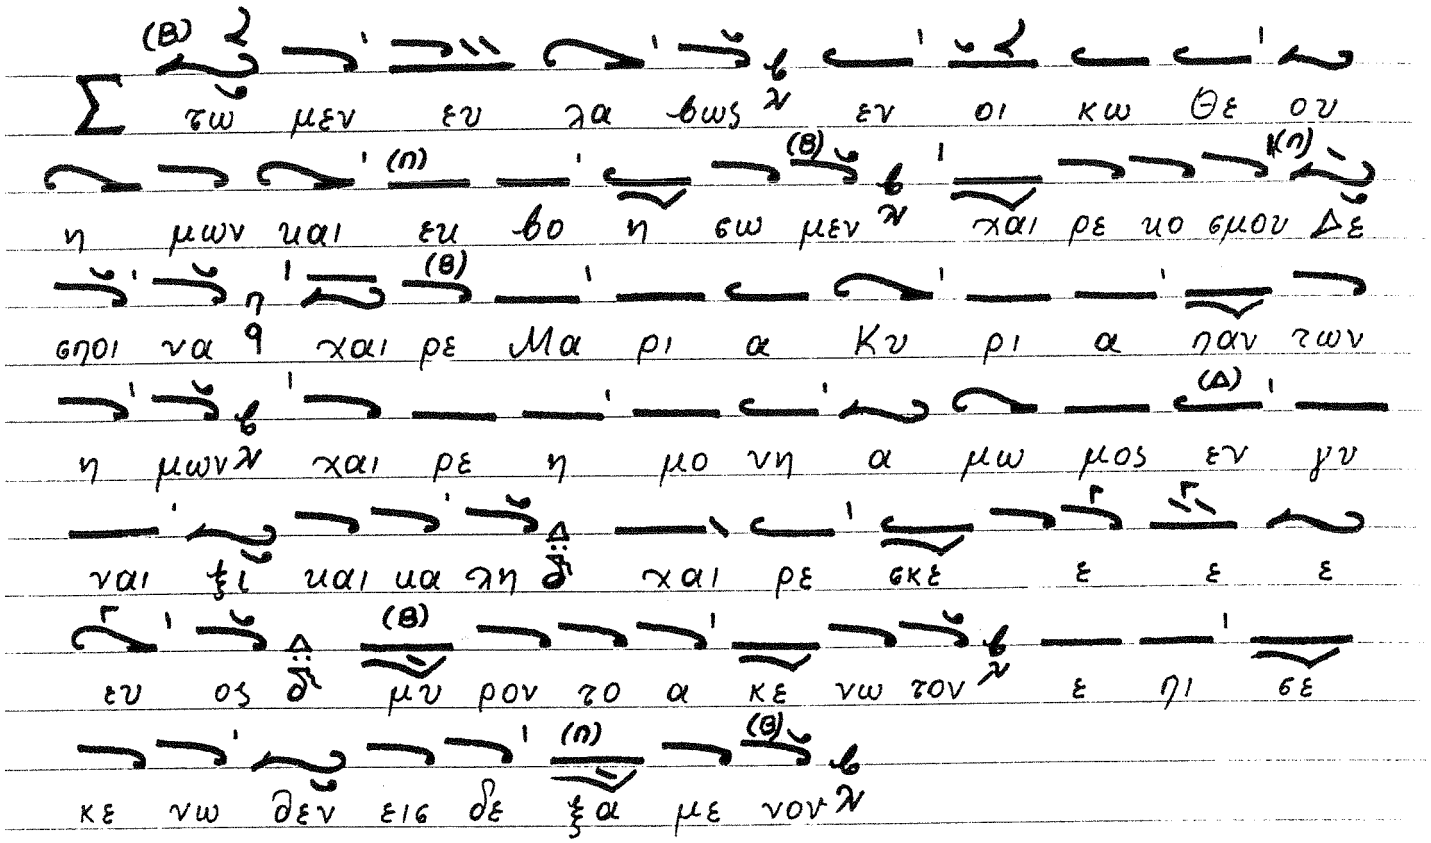 Στω μεν ευ λα βως εν οι κω Θε ου
η μων και εκ βο η σω μεν χαι ρε κο σμου Δε
σποι να χαι ρε Μα ρι α Κυ ρι α παν των
η μων χαι ρε η μο νη α μω μος εν γυ
ναι ξι και κα λη χαι ρε σκε ε ε ε
ευ ος μυ ρον το α κε νω τον ε πι σε
κε νω θεν εις δε ξα με νον